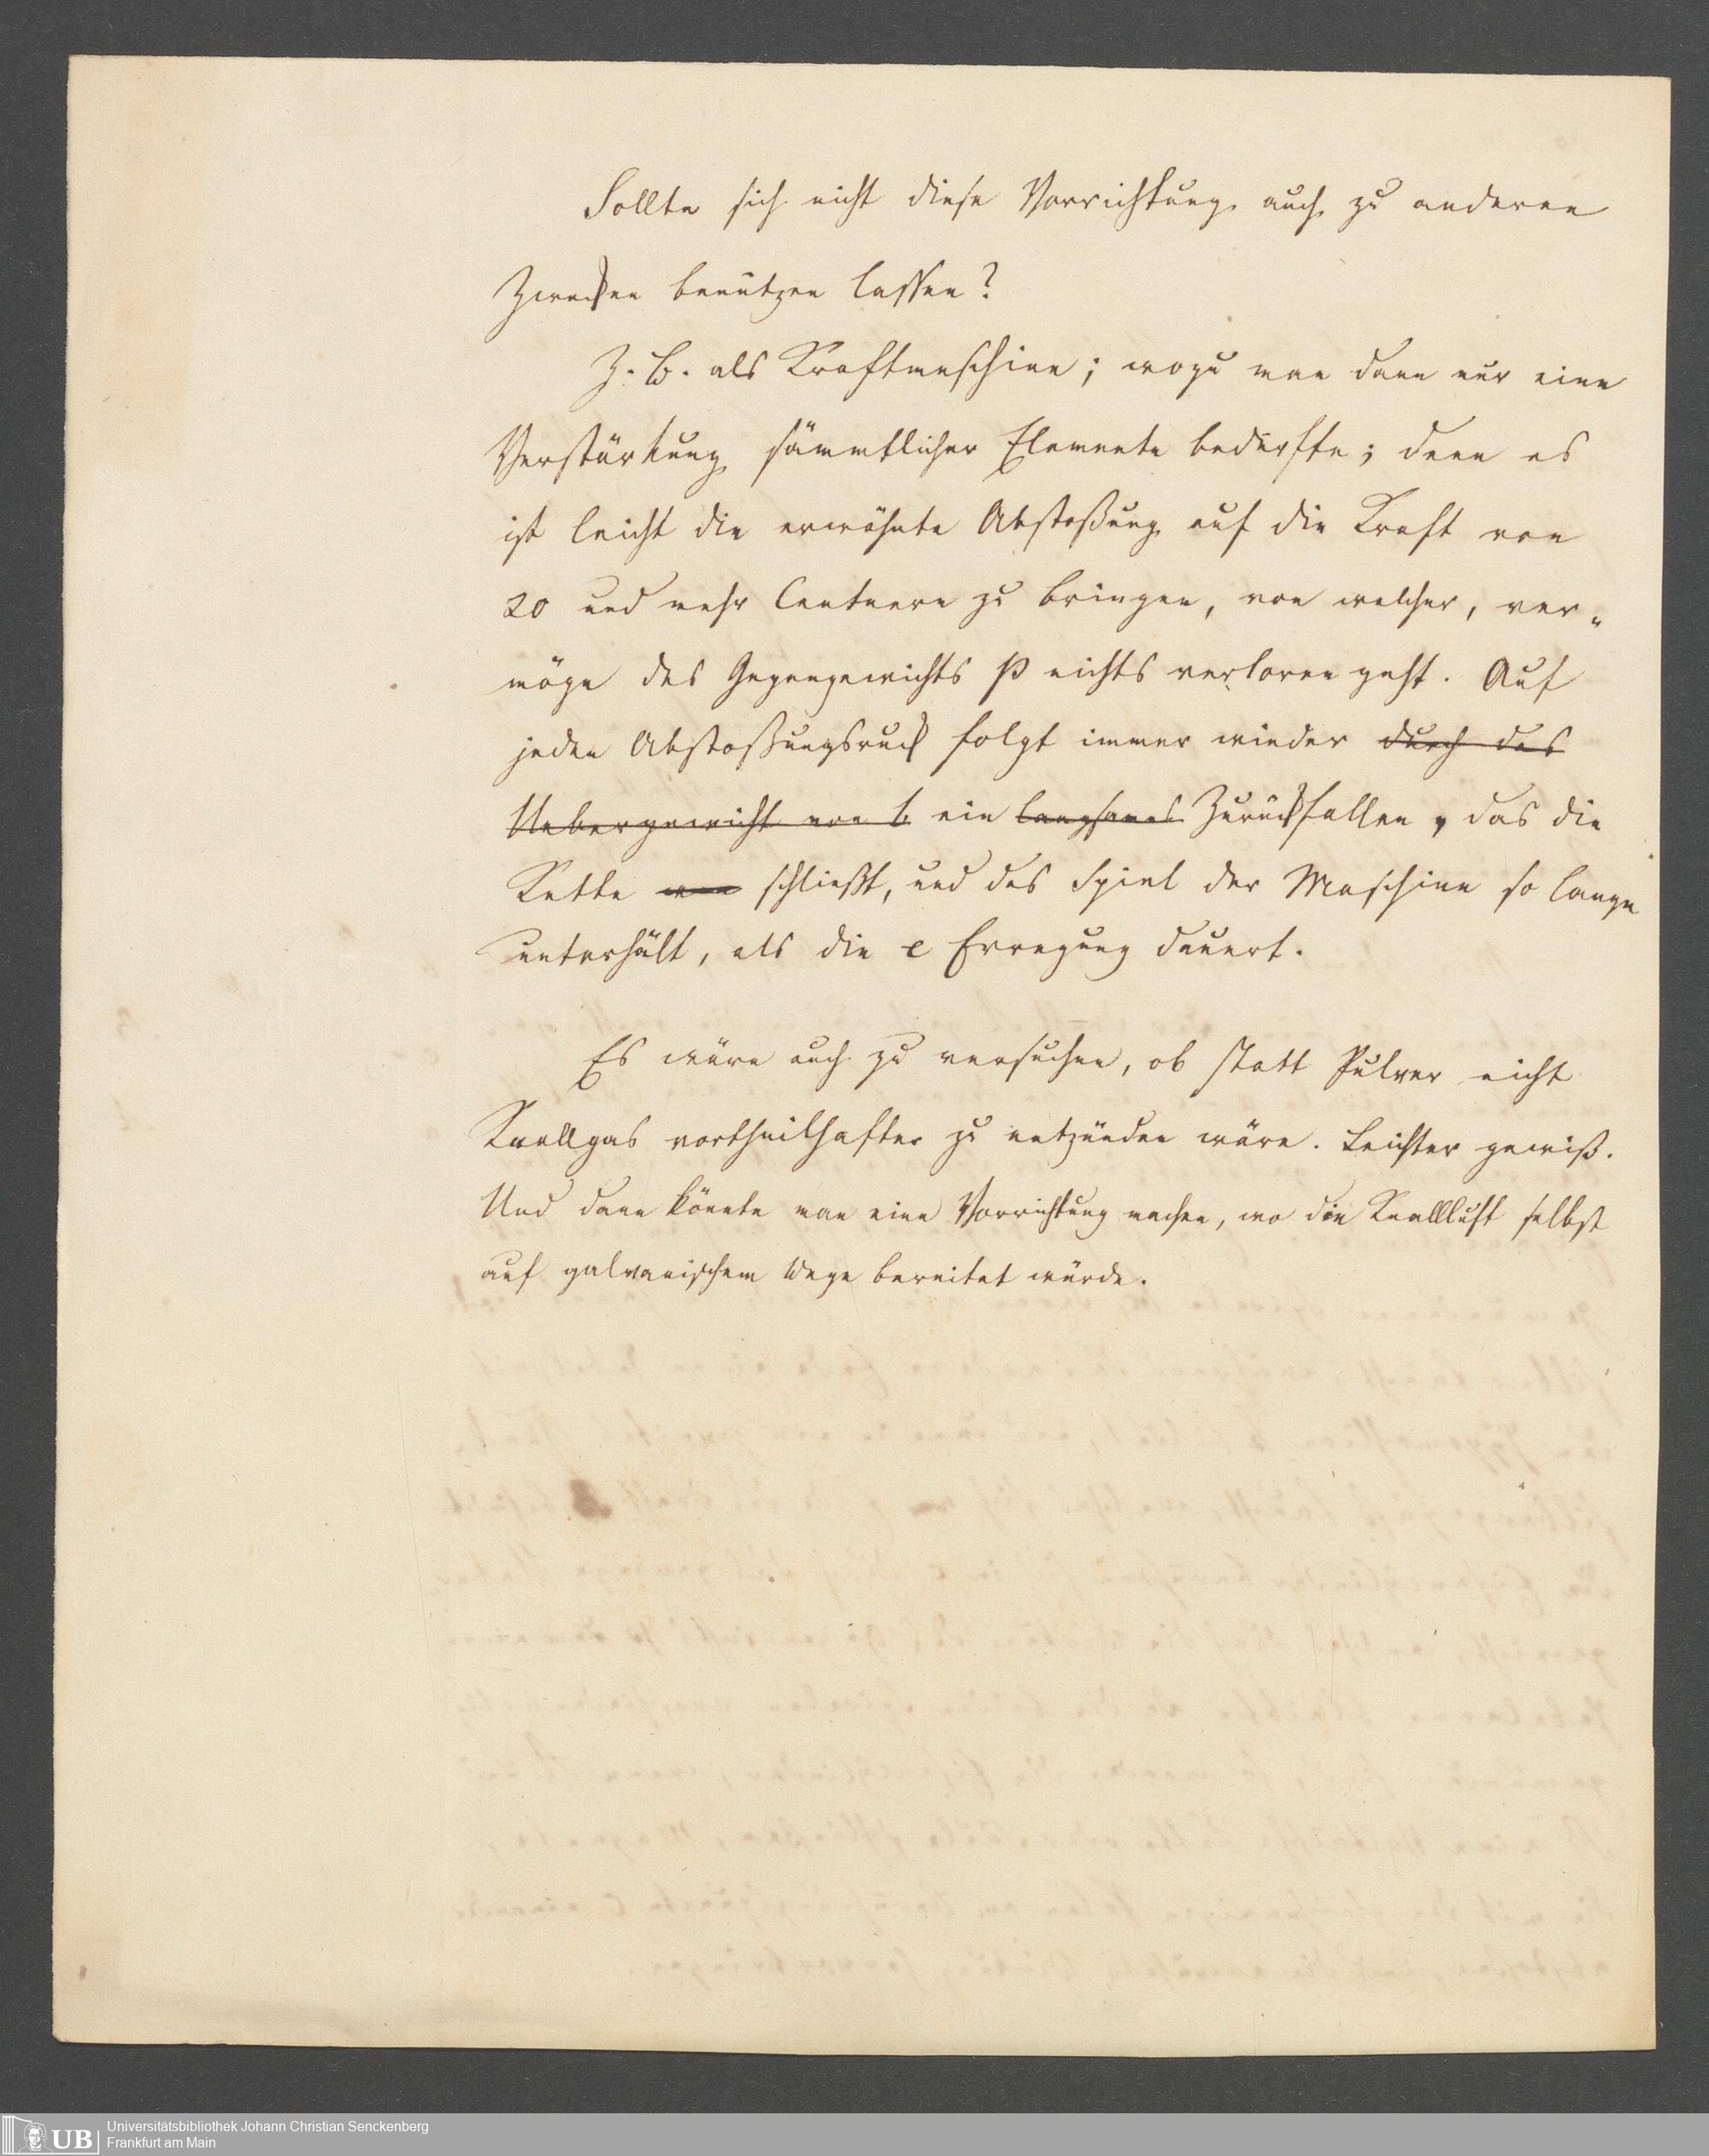 Sollte sich nicht diese Vorrichtung auch zu anderen
Zwecken benützen lassen?
Z. B. als Kraftmaschine; wozu man dann nur eine
Verstärkung sämmtlicher Elemente bedürfte; denn es
ist leicht die erwähnte Abstoßung auf die Kraft von
20 und mehr Centnern zu bringen, von welcher, ver„
möge des Gegengewichts p nichts verloren geht. Auf
jeden Abstoßungsruck folgt immer wieder durch das
Uebergewicht von b ein langsames Zurückfallen, das die
Kette schließt, und das Spiel der Maschine so lange
unterhält, als die e Erregung dauert.
Es wäre auch zu versuchen, ob statt Pulver nicht
Knallgas vortheilhafter zu entzünden wäre. Leichter gewiß.
Und dann könnte man eine Vorrichtung machen, wo die Knallluft selbst
auf galvanischem Wege bereitet würde.
UB
Universitätsbibliothek Johann Christian Senckenberg
Frankfurt am Main